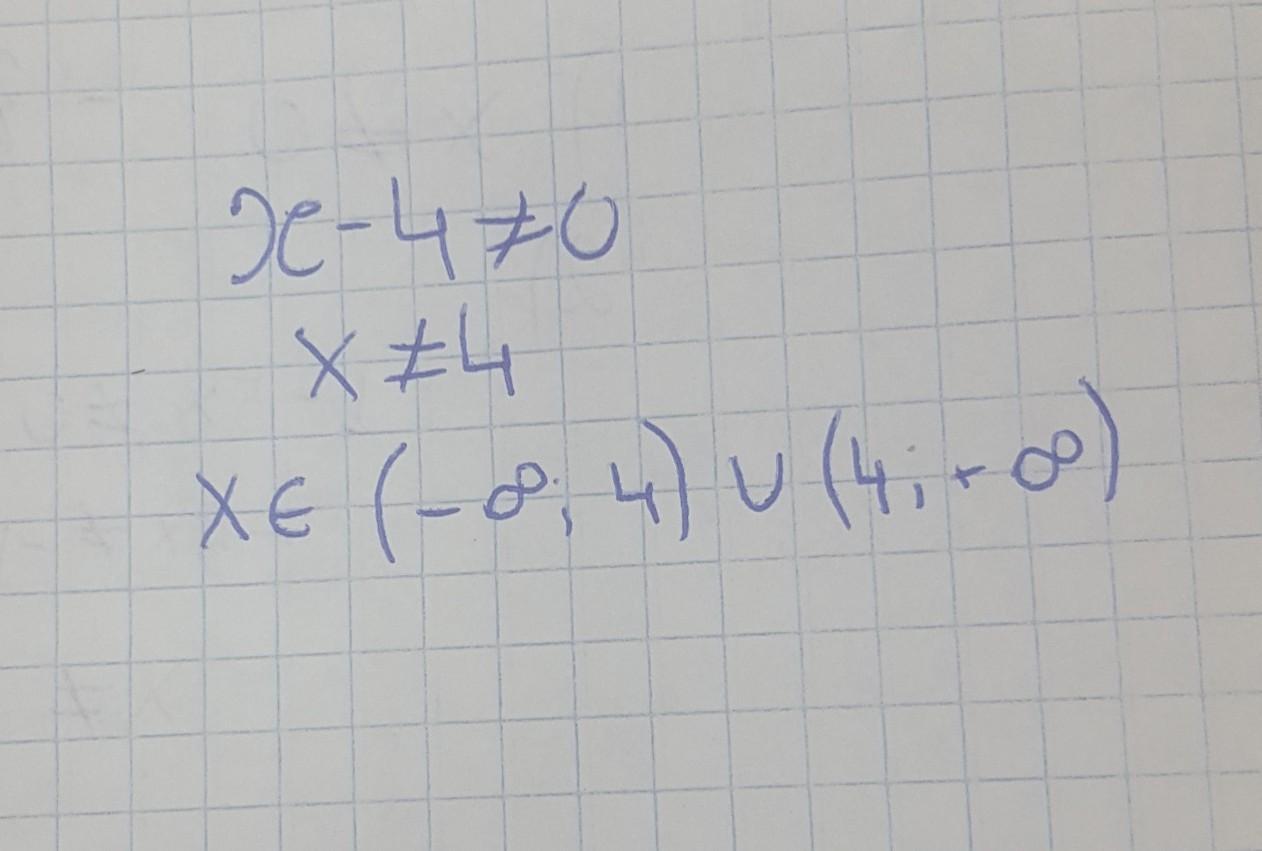 x-4≠0
x≠4
x∈(-∞;4)∪(4;+∞)